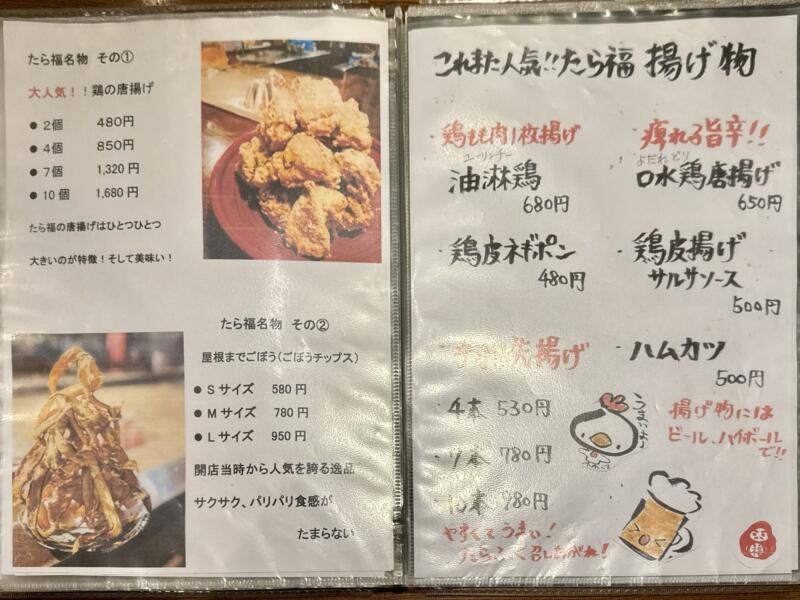 たら福名物 その①
大人気！！鶏の唐揚げ
● 2個 480円
● 4個 850円
● 7個 1,320円
● 10個 1,680円
たら福の唐揚げはひとつひとつ
大きいのが特徴！そして美味い！
たら福名物 その②
屋根までごぼう(ごぼうチップス)
● Sサイズ 580円
● Mサイズ 780円
● Lサイズ 950円
開店当時から人気を誇る逸品
サクサク、パリパリ食感が
たまらない
これまた人気!!たら福 揚げ物
鶏もも肉1枚揚げ
ユーリンチー
・油淋鶏
680円
痺れる旨辛!!
よだれどり
・口水鶏唐揚げ
650円
・鶏皮ネギポン
480円
・鶏皮揚げ
サルサソース
500円
揚げ
・4本 530円
・7本 780円
・10本 980円
やすくてうまい!
たらふく召しあがれ!
・ハムカツ
500円
揚げ物には
ビール、ハイボール
で!!